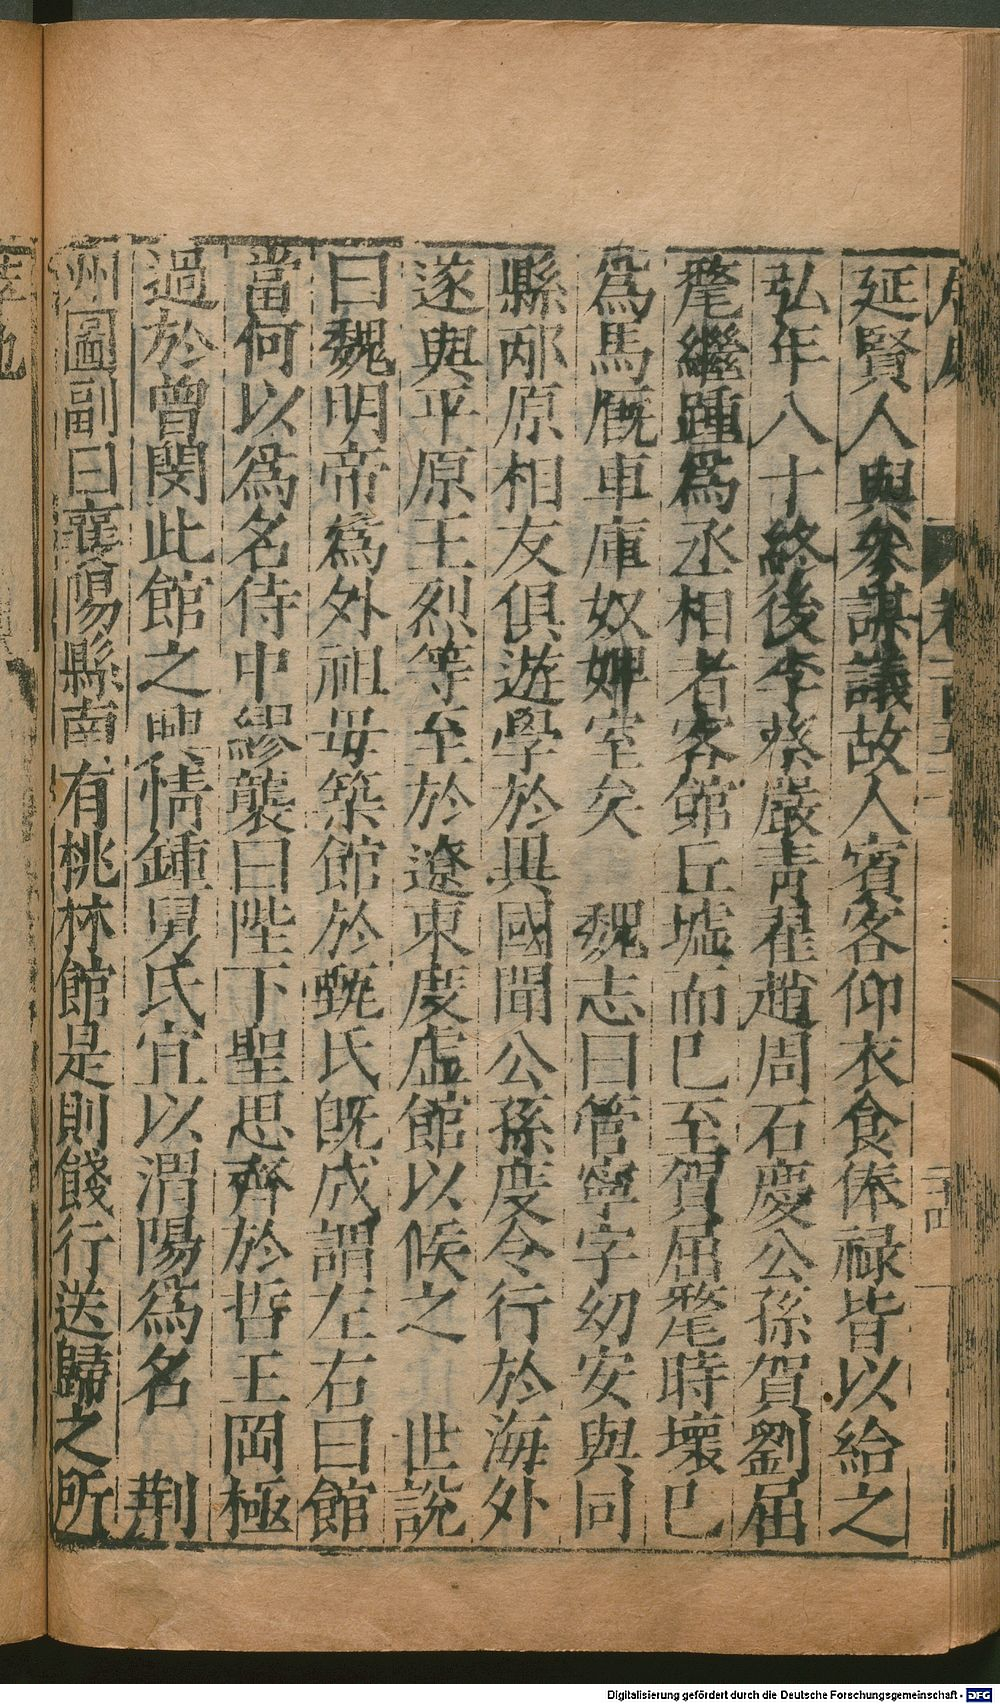 延賢人與參謀議故人賓客仰衣食俸祿皆以給之
弘年八十終後李蔡嚴青翟趙周石慶公孫賀劉屈
氂繼踵爲丞相者客館丘墟而已至賀屈氂時壞已
爲馬廐車庫奴婢室矣　魏志曰管寧字幼安與同
縣邴原相友俱遊學於異國聞公孫度令行於海外
遂與平原王烈等至於遼東度虛館以候之　世說
曰魏明帝爲外祖母築館於甄氏旣成謂左右曰館
當何以爲名侍中繆襲曰陛下聖思齊於哲王罔極
過於曾閔此館之興情鍾舅氏宜以渭陽爲名　荆
州圖副曰襄陽縣南有桃林館是則餞行送歸之所
Digitalisierung gefördert durch die Deutsche Forschungsgemeinschaft - DFG